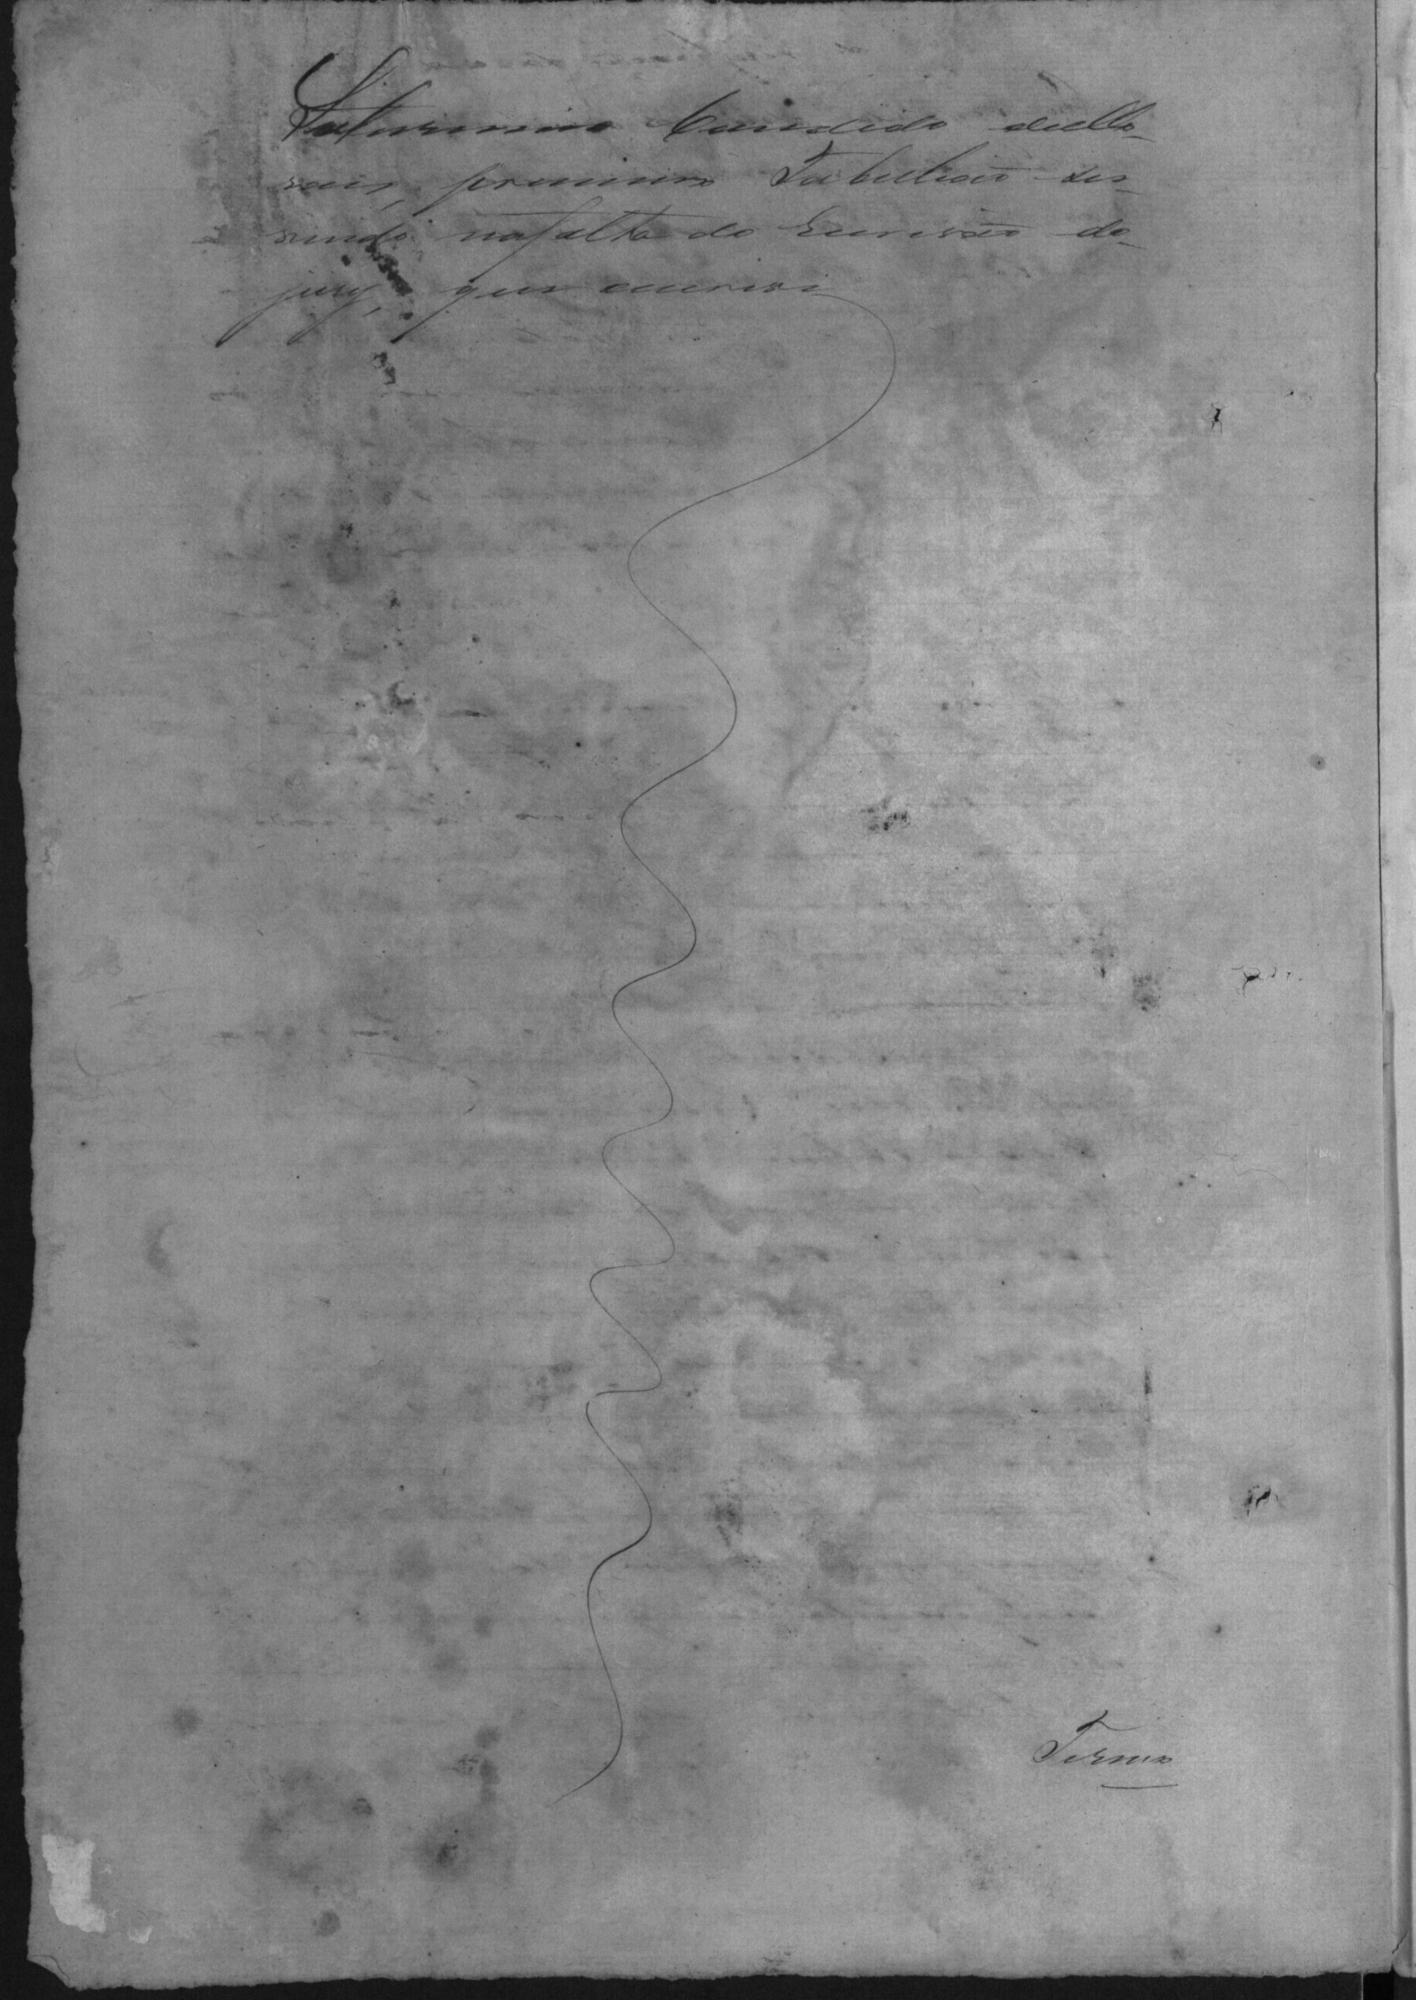 Saturnino Candido de Mo-
raes, primeiro Tabelião ser-
vindo na falta do Escrivão do
jury, que escrevi
Termo